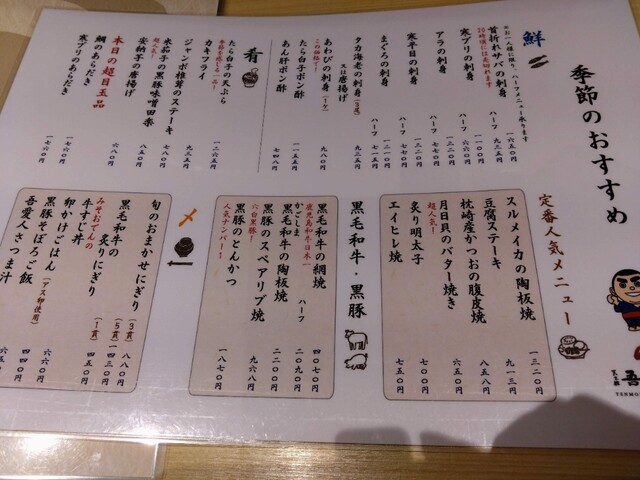 季節のおすすめ
鮮
※お一人様に限り、ハーフメニュー承ります
首折れサバの刺身 一六五〇円
ハーフ 九三五円
20時頃には売切れます
寒ブリの刺身 一一〇〇円
ハーフ 六六〇円
アラの刺身 一三二〇円
ハーフ 七七〇円
寒平目の刺身
ハーフ 七七〇円
まぐろの刺身 一二一〇円
ハーフ 七一五円
タカ海老の刺身(3尾)
又は唐揚げ 九三五円
あわびの刺身(1ケ) 九八〇円
この価格で!
たら白子ポン酢 一一五五円
あん肝ポン酢 七四八円
肴
たら白子の天ぷら 一二六五円
季節を感じる一品!
カキフライ 九三五円
ジャンボ椎茸のステーキ 七八〇円
米茄子の黒豚味噌田楽 八五〇円
超人気!
安納芋の唐揚げ 六八〇円
本日の超目玉品
鯛のあらだき 一七六〇円
寒ブリのあらだき 一七六〇円
定番人気メニュー
スルメイカの陶板焼 一三二〇円
豆腐ステーキ 九一三円
枕崎産かつおの腹皮焼 八五八円
月日貝のバター焼き 六五〇円
超人気!
炙り明太子 七〇〇円
エイヒレ焼 七五〇円
黒毛和牛・黒豚
黒毛和牛の網焼 四〇七〇円
ハーフ 二〇九〇円
鹿児島和牛日本一
かごしま
黒毛和牛の陶板焼 二二〇〇円
黒豚のスペアリブ焼 九六八円
六白黒豚!
黒豚のとんかつ 一八七〇円
人気ナンバー1!
〆
旬のおまかせにぎり(3貫) 八八〇円
黒毛和牛の
炙りにぎり(5貫) 一四三〇円
(1貫) 四五〇円
みそおでんの
牛すじ丼
卵かけごはん(アスタ卵使用) 四四〇円
黒豚そぼろご飯 六六〇円
吾愛人さつま汁 六六〇円
天文館
吾